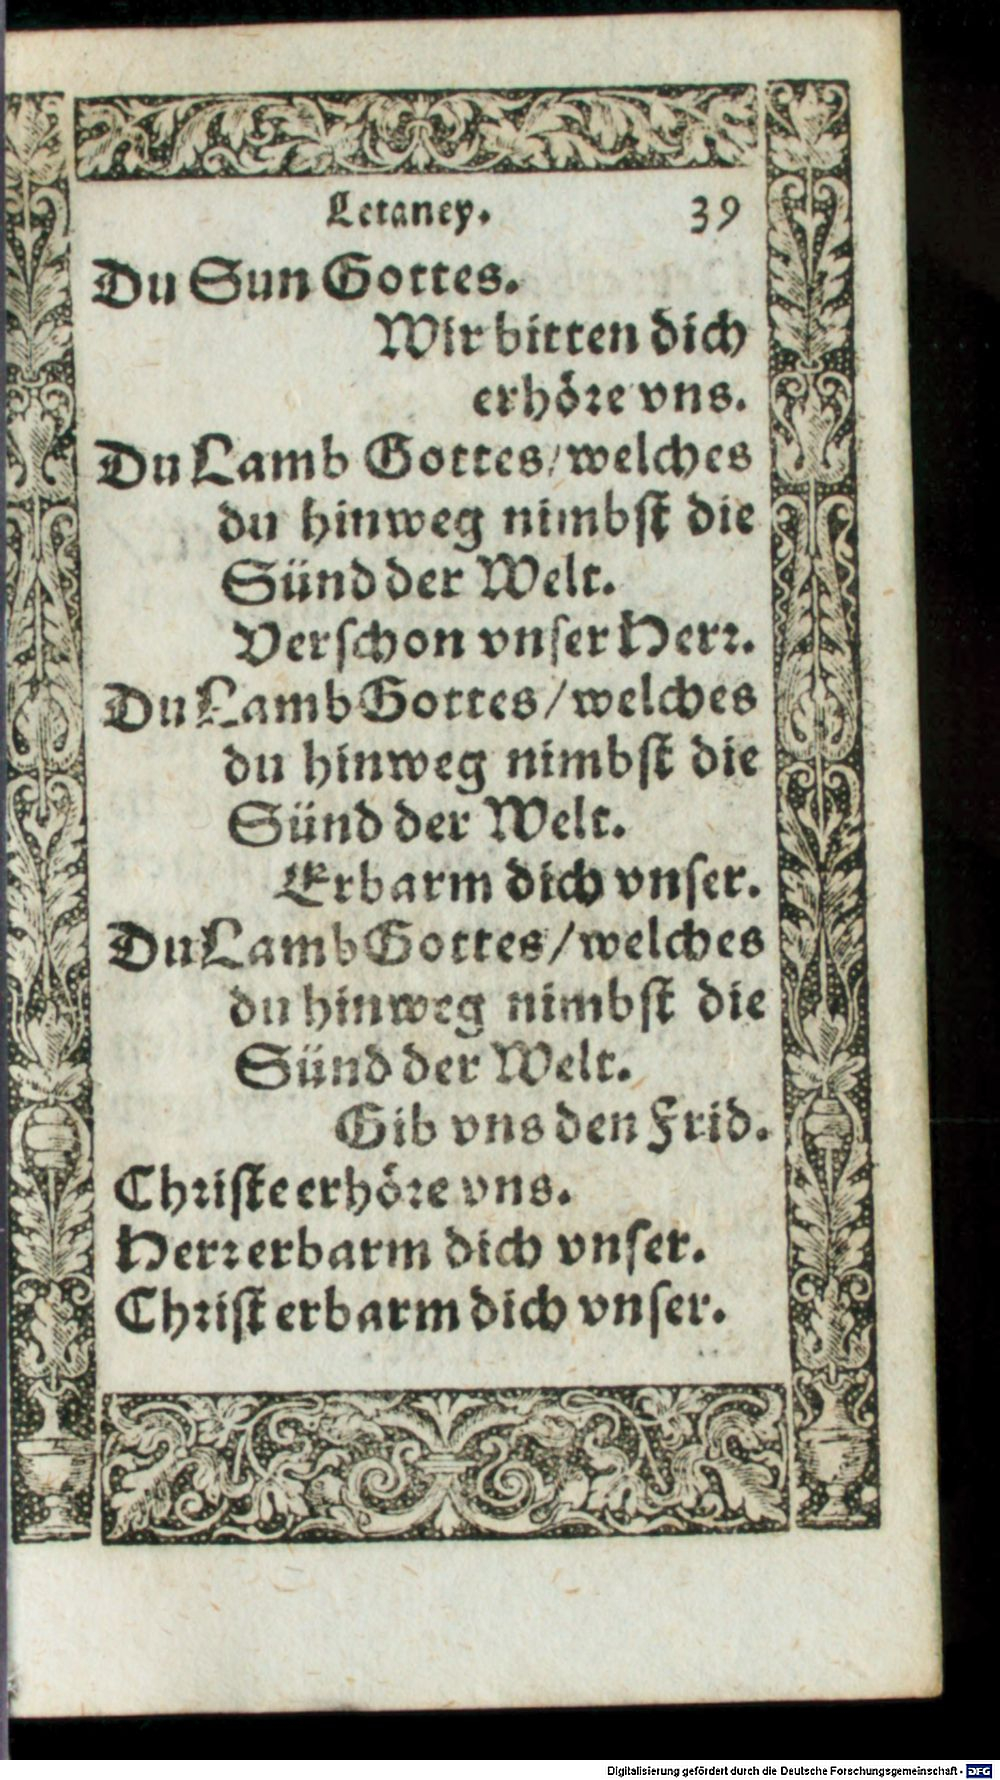 Letaney. 39
Du Sun Gottes.
Wir bitten dich
erhöre vns.
Du Lamb Gottes/welches
du hinweg nimbst die
Sünd der Welt.
Verschon vnser Herr.
Du Lamb Gottes/welches
du hinweg nimbst die
Sünd der Welt.
Erbarm dich vnser.
Du Lamb Gottes/welches
du hinweg nimbst die
Sünd der Welt.
Gib vns den Frid.
Christe erhöre vns.
Herr erbarm dich vnser.
Christ erbarm dich vnser.
Digitalisierung gefördert durch die Deutsche Forschungsgemeinschaft - DFG